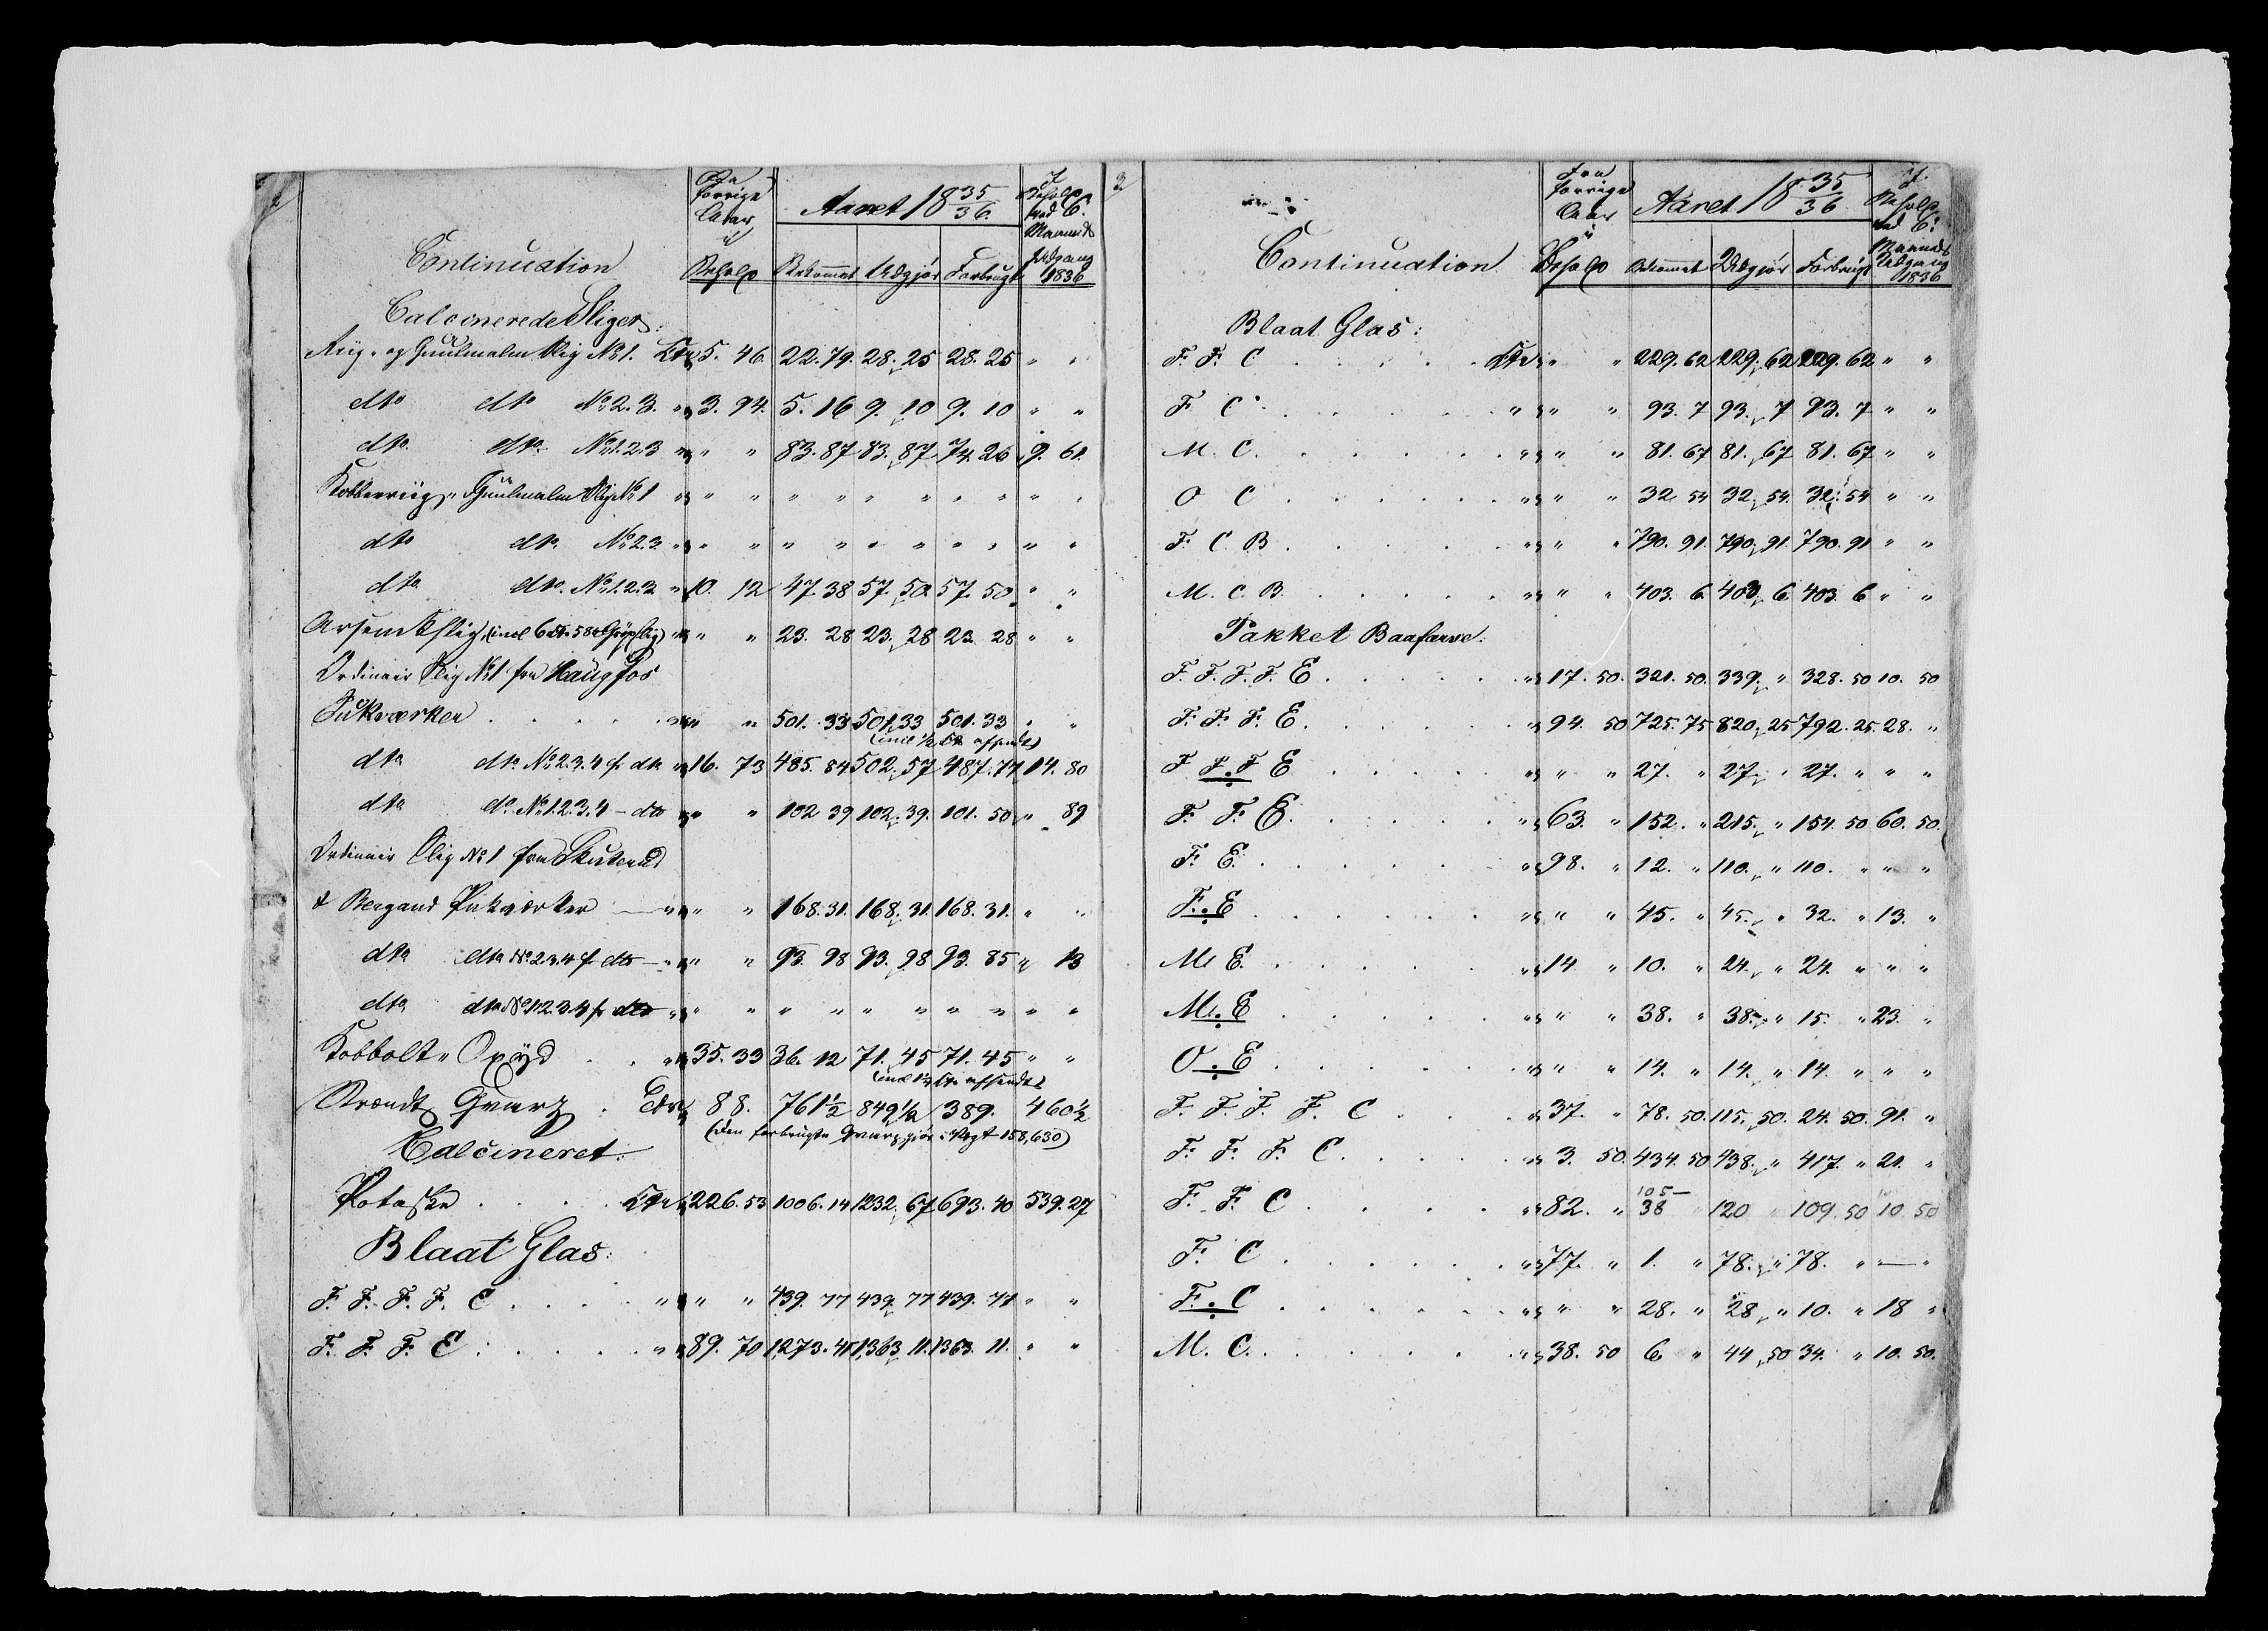 Continuation
Fra forrige Aar i Behold
Aaret 18 35/36
Bekommet Udgjør Forbrugt
I Behold ved 6. Maaneds Udgang 1836
Calcinerede Sliger:
Riig- og Guulmalm Slig No 1. Ctr 5. 46. 22. 79. 28. 25 28. 25 " "
dto dto No 2. 3. " 3. 94. 5. 16 9. 10 9. 10 " "
dto dto No 1. 2. 3 " " " 83. 87 83. 87 74. 26 9. 61.
Kobberriig- Guulmalm Slig No 1 " " " " " " " " " " "
dto dto No 2. 3 " " " " " " " " " " "
dto dto. No 1. 2. 3 " 10. 12 47. 38 57. 50 57. 50 " "
Arsenikslig, (incl 6 Ctr 58 ) " " " 23. 28 23. 28 23. 28 " "
Ordinair Slig No 1 fra Haugfos
Pukværker . . . . " " " 501. 33 501. 33 501. 33 " "
(incl 1/2 Ctr afsendt)
dto dto No 2. 3. 4 f dto " 16. 73 485. 84 502. 57 487. 77 14. 80
dto do No 1. 2. 3. 4 – dto " " " 102 39 102. 39. 101. 50 " 89
Ordinair Slig No 1 fra Skuterud
& Bergand Pukværker " " " 168. 31. 168. 31. 168. 31. " "
dto dto No 2. 3. 4 f dto " " " 93. 98 93. 98 93. 85 " 13
dto dto No 1. 2. 3. 4 f dto " " " " " " " " " " "
Kobbolt " Oxÿd . . " 35. 33 36. 12 71. 45 71. 45 " "
(incl 1/2 Ctr afsendt)
Brændt Qvarz . Tdr 88. 761 1/2 849 1/2 389. 460 1/2
(den forbrugte Qvarz gjør i Vægt 158,630)
Calcineret:
Potaske . . . . Ctr 226. 53 1006. 14 1232. 67 693. 40 539. 27
Blaat Glas:
F. F. F. F. C . . . . " " " 439. 77 439. 77 439. 77 " "
F. F. F. C . . . . . " 89. 70 1,273. 41 1,363. 11. 1363. 11. " "
3
Continuation
Fra forrige Aar i Behold
Aaret 18 35/36
Bekommet Udgjør Forbrugt
I Behold ved 6. Maaneds Udgang 1836
Blaat Glas:
F. F. C . . . . . Ctr " " 229. 62 229. 62 229. 62 " "
F C . . . . . . " " " 93. 7 93. 7 93. 7 " "
M. C. . . . . . " " " 81. 67 81. 67 81. 67 " "
O C . . . . . . " " " 32 54 32. 54. 32. 54 " "
F. C. B . . . . . " " " 790. 91. 790. 91. 790. 91 " "
M. C. B. . . . . . " " " 403. 6. 403. 6 403. 6 " "
Pakket Baafarve:
F. F. F. F. E . . . . . " 17. 50. 321. 50. 339. " 328. 50 10. 50
F. F. F. E . . . . . " 94. 50 725. 75 820. 25 792. 25. 28. "
F F. F E . . . . . " " " 27. " 27. " 27. " " "
F. F. E . . . . . " 63. " 152. " 215. " 154. 50 60. 50.
F. E. . . . . . " 98. " 12. " 110. " 110. " " "
F. E . . . . . . " " " 45. " 45. " 32. " 13. "
M. E. . . . . . " 14 " 10. " 24. " 24. " " "
M. E . . . . . " " " 38. " 38. " 15. " 23. "
O. E . . . . . . " " " 14. " 14. " 14. " " "
F. F. F. F. C . . . " 37. " 78. 50. 115. 50. 24. 50. 91. "
F. F. F. C . . . . . " 3. 50. 434. 50 438. " 417. " 21. "
F. F. C . . . . " 82. " 105 – 38 120 " 109. 50 10 50
F. C . . . . . . " 77. " 1. " 78. " 78. " — "
F. C . . . . . . " " " 28. " 28 " 10. " 18 "
M. C. . . . . . . " 38. 50 6 " 44. 50 34. " 10. 50.